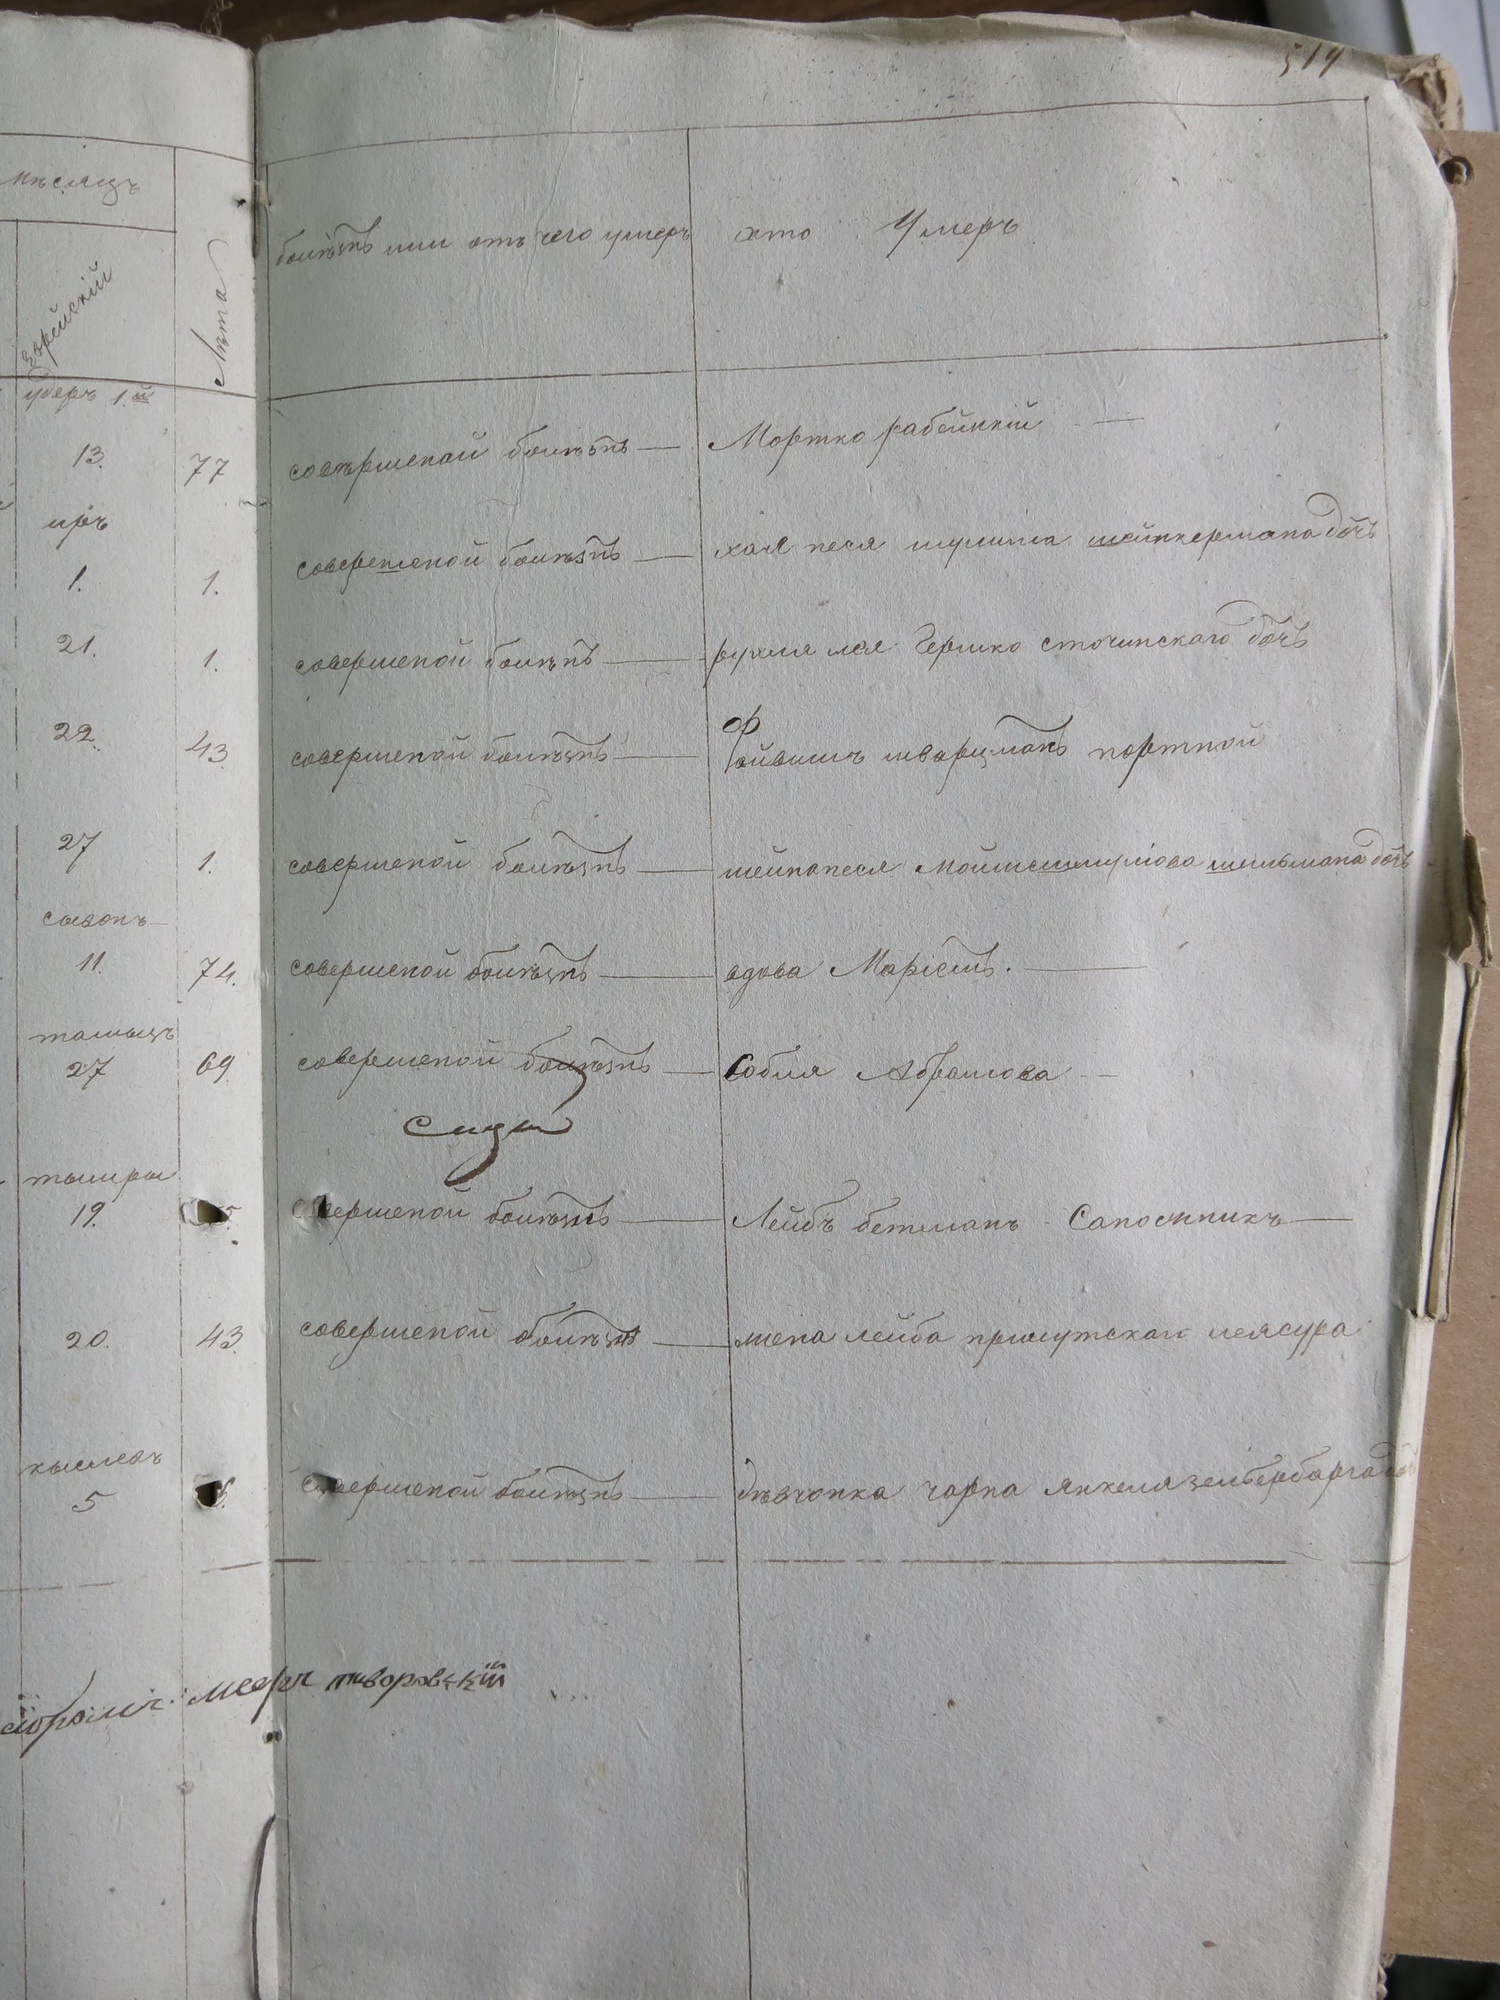 519
мѣсяцъ
еврейскій
Лѣта
болѣзнь или отъ чего умеръ хто Умеръ
1.й
13. 77 совершеной болѣзнь — Мортко рабейккій —
иръ
1. 1. совершеной болѣзнь — хая песя шулима шейнкермана дочь
21. 1. совершеной болѣзнь — рухля лея Гершко сточинскаго дочь
22. 43. совершеной болѣзнь — Файвишъ шварцманъ портной
27 1. совершеной болѣзнь — шейнапеся дочь
сывонъ
11. 74. совершеной болѣзнь — вдова Маріемъ. —
тамызъ
27 69. совершеной болѣзнь — Собля Абрамова —
тышры
19. вершеной болѣзнь — Лейбъ бетманъ Сапожникъ —
20. 43. совершеной болѣзнь — жена лейба
кыслевъ
5 совершеной болѣзнь — дѣвчонка чарна янкеля зельбербарга
мееръ творовскій